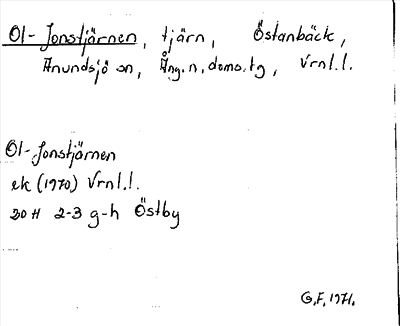 Ol-Jonstjärnen, tjärn, Östanbäck,
Anundsjö sn, Ång.n.doms.tg, Vrnl.l.
Ol-Jonstjärnen
ek (1970) Vrnl.l.
20 H 2-3 g-h Östby
G.F. 1971.